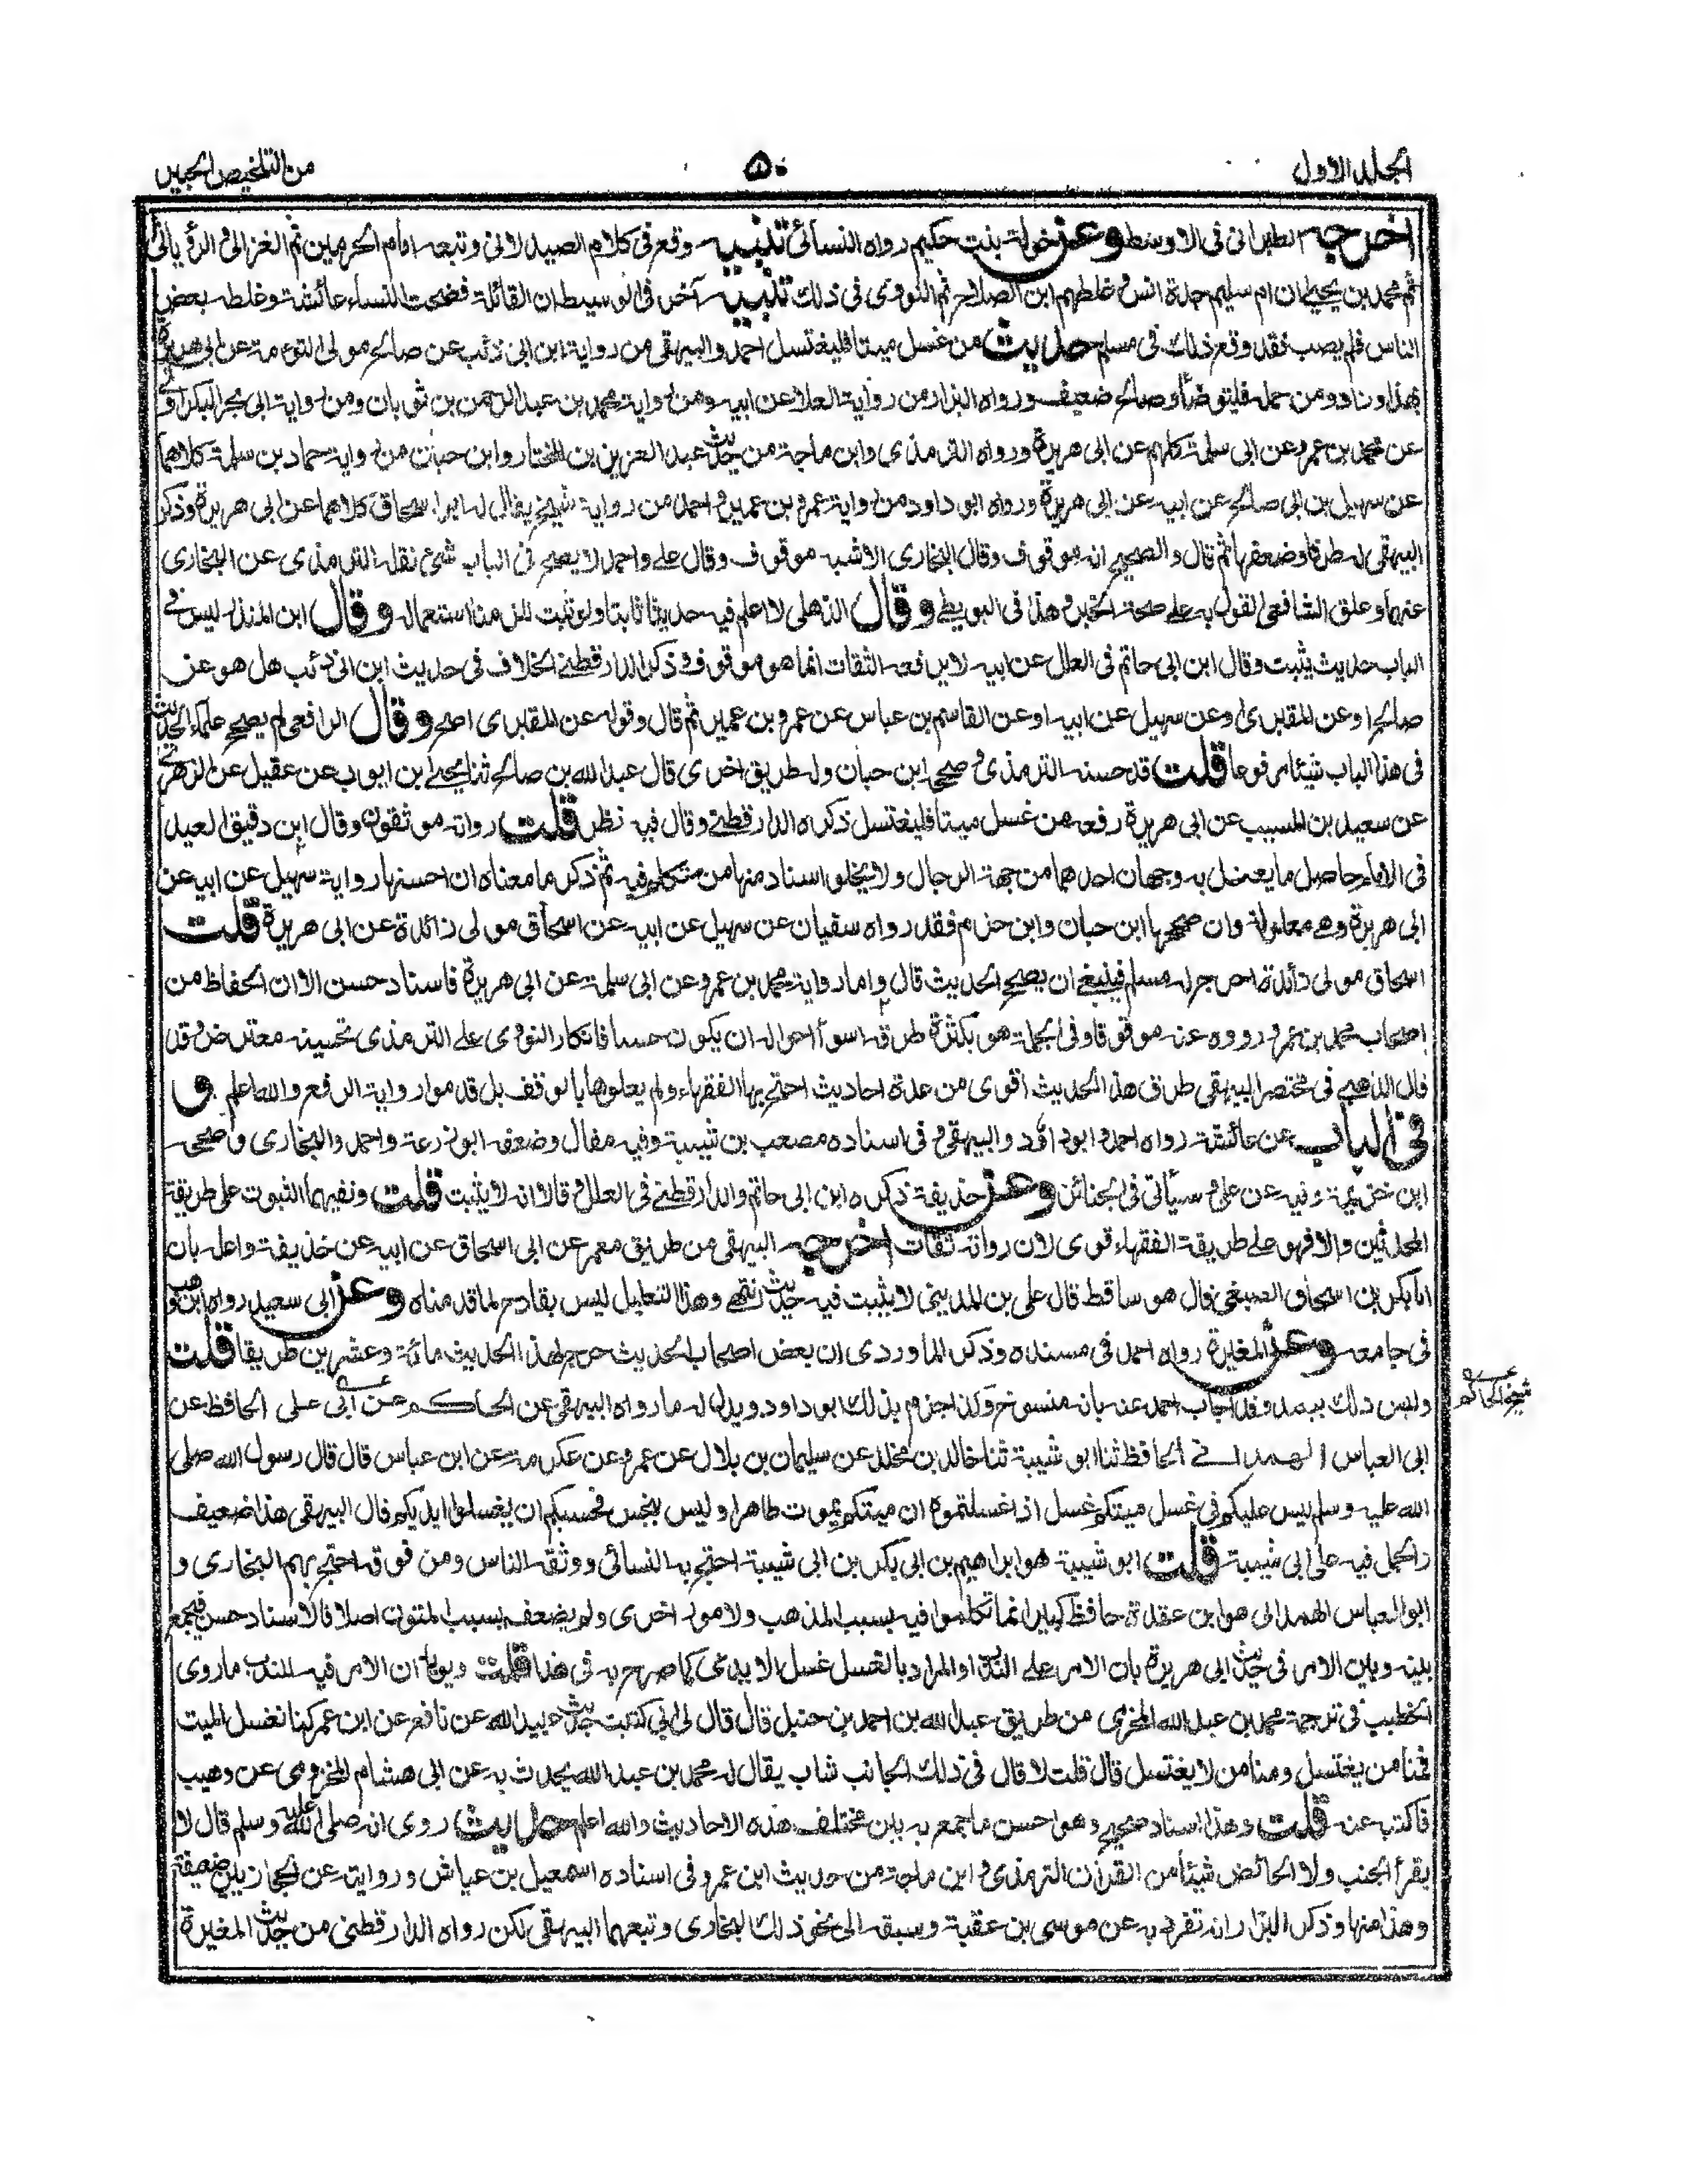 الجلد الاول
٥٠
من التلخيص الحبير
اخرجه الطبرانى فى الاوسط وعن خولة بنت حكيم رواه النسائى تنبيه وقع فى كلام الصيدلانى وتبعه امام الحرمين ثم الغزالى والرؤيانى
ثم محمد بن يحيى ان ام سليم جدة انس وغلطهم ابن الصلاح ثم النووى فى ذلك تنبيه آخر فى الوسيط ان القائلة فضحت النساء عائشة وغلطه بعض
الناس فلم يصب فقد وقع ذلك فى مسلم حديث من غسل ميتا فليغتسل احمد والبيهقى من رواية ابن ابى ذئب عن صالح مولى التوءمة عن ابى هريرة
بهذا وزاد ومن حمله فليتوضأ وصالح ضعيف ورواه البزار من رواية العلاء عن ابيه ومن رواية محمد بن عبد الرحمن بن ثوبان ومن رواية ابى بحر البكراوى
عن محمد بن عمرو عن ابى سلمة كلهم عن ابى هريرة ورواه الترمذى وابن ماجة من حديث عبد العزيز بن المختار وابن حبان من رواية حماد بن سلمة كلاهما
عن سهيل بن ابى صالح عن ابيه عن ابى هريرة ورواه ابو داود من رواية عمرو بن عمير واحمد من رواية شيخ يقال له ابو اسحاق كلاهما عن ابى هريرة وذكر
البيهقى له طرقا وضعفها ثم قال والصحيح انه موقوف وقال البخارى الاشبه موقوف وقال على واحمد لا يصح فى الباب شئ نقله الترمذى عن البخارى
عنهما وعلق الشافعى القول به على صحة الخبر وهذا فى البويطى وقال الذهلى لا اعلم فيه حديثا ثابتا ولو ثبت للزمنا استعماله وقال ابن المنذر ليس فى
الباب حديث يثبت وقال ابن ابى حاتم فى العلل عن ابيه لا يرفعه الثقات انما هو موقوف وذكر الدارقطنى الخلاف فى حديث ابن ابى ذئب هل هو عن
صالح او عن المقبرى او عن سهيل عن ابيه او عن القاسم بن عباس عن عمرو بن عمير ثم قال وقوله عن المقبرى اصح وقال الرافعى لم يصحح علماء الحديث
فى هذا الباب شيئا مرفوعا قلت قد حسنه الترمذى وصححه ابن حبان وله طريق اخرى قال عبد الله بن صالح ثنا يحيى بن ايوب عن عقيل عن الزهرى
عن سعيد بن المسيب عن ابى هريرة رفعه من غسل ميتا فليغتسل ذكره الدارقطنى وقال فيه نظر قلت رواته موثقون وقال ابن دقيق العيد
فى الامام حاصل ما يعتل به وجهان احدهما من جهة الرجال ولا يخلوا اسناد منها من متكلم فيه ثم ذكر ما معناه ان احسنها رواية سهيل عن ابيه عن
ابى هريرة وهى معلولة وان صححها ابن حبان وابن حزم فقد رواه سفيان عن سهيل عن ابيه عن اسحاق مولى زائدة عن ابى هريرة قلت
اسحاق مولى زائدة اخرج له مسلم فينبغى ان يصحح الحديث قال واما رواية محمد بن عمرو عن ابى سلمة عن ابى هريرة فاسناد حسن الا ان الحفاظ من
اصحاب محمد بن عمرو رووه عنه موقوفا وفى الجملة هو بكثرة طرقه اسوأ احواله ان يكون حسنا فانكار النووى على الترمذى تحسينه معترض وقد
قال الذهبى فى مختصر البيهقى طرق هذا الحديث اقوى من عدة احاديث احتج بها الفقهاء ولم يعلوها بالوقف بل قدموا رواية الرفع والله اعلم و
فى الباب عن عائشة رواه احمد وابو داود والبيهقى وفى اسناده مصعب بن شيبة وفيه مقال وضعفه ابو زرعة واحمد والبخارى وصححه
ابن خزيمة وفيه عن على وسيأتى فى الجنائز وعن حذيفة ذكره ابن ابى حاتم والدارقطنى فى العلل وقالا انه لا يثبت قلت ونفيهما الثبوت على طريقة
المحدثين والا فهو على طريقة الفقهاء قوى لان رواته ثقات اخرجه البيهقى من طريق معمر عن ابى اسحاق عن ابيه عن حذيفة واعله بان
ابا بكر بن اسحاق الصبغى قال هو ساقط قال على بن المدينى لا يثبت فيه حديث انتهى وهذا التعليل ليس بقادح لما قدمناه وعن ابى سعيد رواه ابن وهب
فى جامعه وعن المغيرة رواه احمد فى مسنده وذكر الماوردى ان بعض اصحاب الحديث خرج لهذا الحديث مائة وعشرين طريقا قلت
وليس ذلك ببعيد وقد اجاب احمد عنه بانه منسوخ وكذا جزم بذلك ابو داود ويدل له ما رواه البيهقى عن الحاكم عن ابى على الحافظ عن
شيخ الحاكم
ابى العباس الهمدانى الحافظ ثنا ابو شيبة ثنا خالد بن مخلد عن سليمان بن بلال عن عمرو عن عكرمة عن ابن عباس قال قال رسول الله صلى
الله عليه وسلم ليس عليكم فى غسل ميتكم غسل اذا غسلتموه ان ميتكم يموت طاهرا وليس بنجس فحسبكم ان يغسلوا ايديكم قال البيهقى هذا ضعيف
والحمل فيه على ابى شيبة قلت ابو شيبة هو ابراهيم بن ابى بكر بن ابى شيبة احتج به النسائى ووثقه الناس ومن فوقه احتج بهم البخارى و
ابو العباس الهمدانى هو ابن عقدة حافظ كبير انما تكلموا فيه بسبب المذهب ولامور اخرى ولم يضعف بسبب المتون اصلا فالاسناد حسن فيجمع
بينه وبين الامر فى حديث ابى هريرة بان الامر على الندب او المراد بالغسل غسل الايدى كما صرح به فى هذا قلت ويؤيد ان الامر فيه للندب ما روى
الخطيب فى ترجمة محمد بن عبد الله المخرمى من طريق عبد الله بن احمد بن حنبل قال قال لى ابى كتبت حديث عبيد الله عن نافع عن ابن عمر كنا نغسل الميت
فمنا من يغتسل ومنا من لا يغتسل قال قلت لا قال فى ذلك الجانب شاب يقال له محمد بن عبد الله يحدث به عن ابى هشام المخزومى عن وهيب
فاكتب عنه قلت وهذا اسناد صحيح وهو احسن ما جمع به بين مختلف هذه الاحاديث والله اعلم حديث روى انه صلى الله عليه وسلم قال لا
يقرأ الجنب ولا الحائض شيئا من القرآن الترمذى وابن ماجة من حديث ابن عمر وفى اسناده اسمعيل بن عياش وروايته عن الحجازيين ضعيفة
وهذا منها وذكر البزار انه تفرد به عن موسى بن عقبة وسبقه الى نحو ذلك البخارى وتبعهما البيهقى لكن رواه الدارقطنى من حديث المغيرة